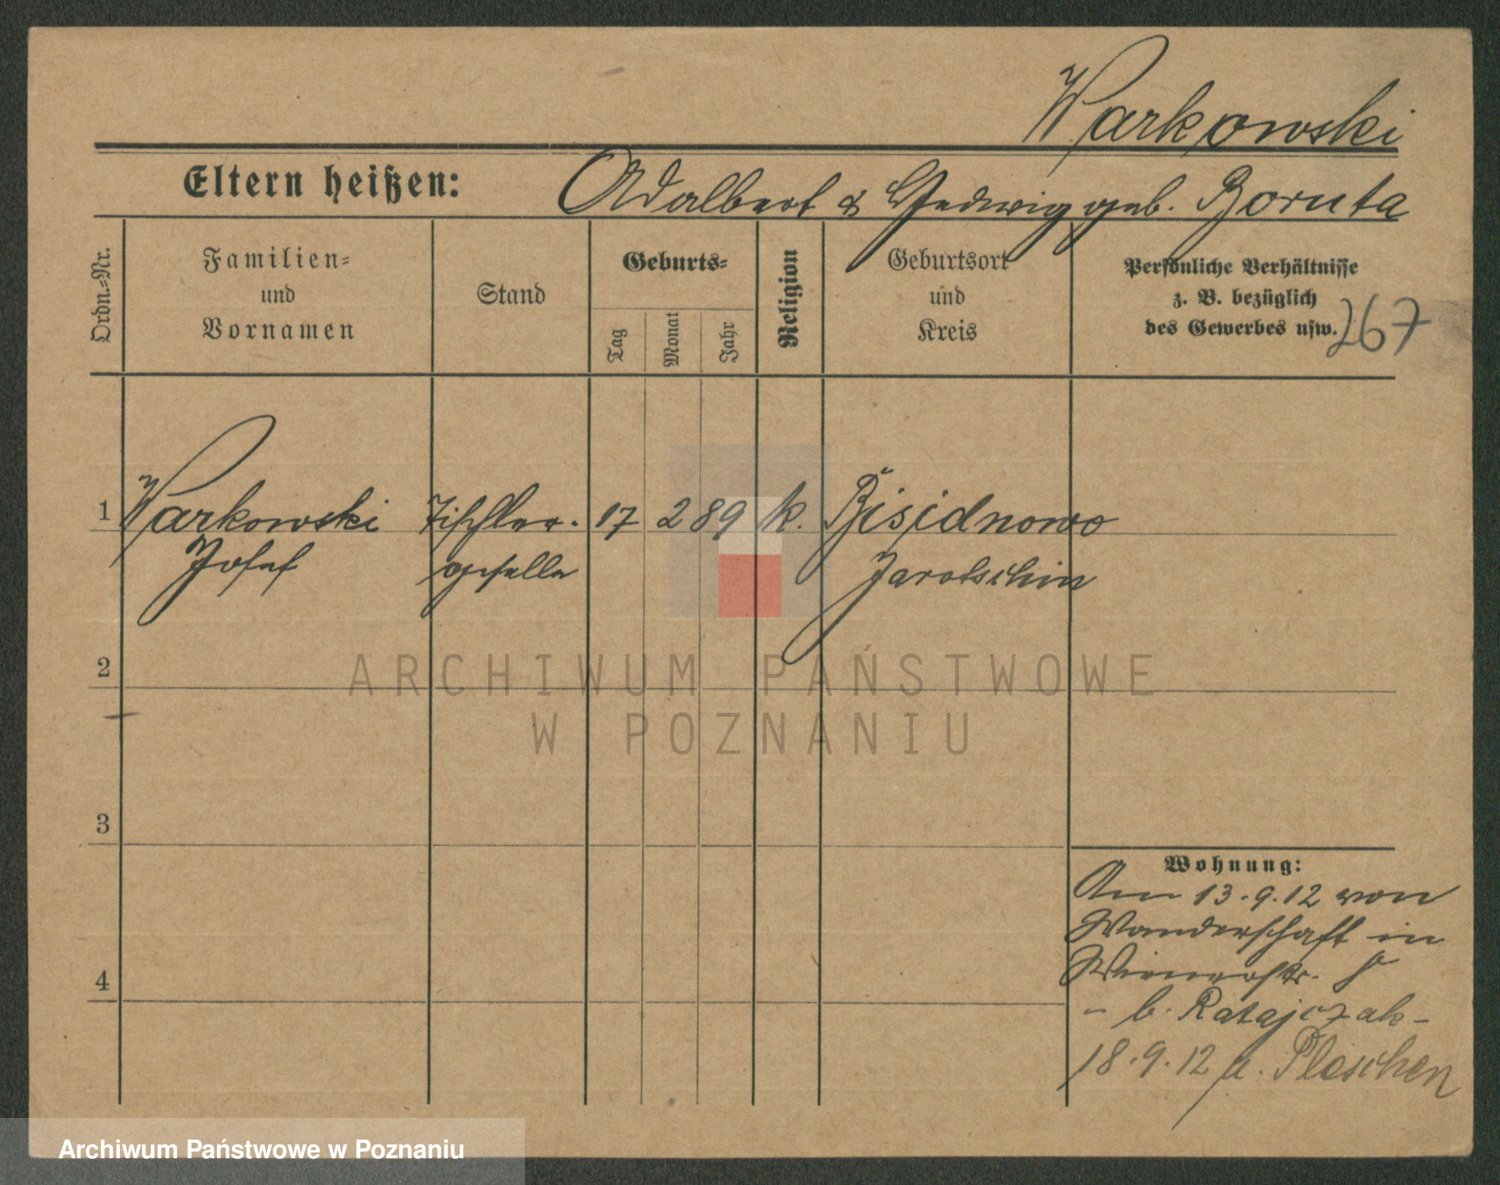 Warkowski
Eltern heißen: Adalbert & Hedwig geb. Boruta
Ordn.-Nr.
Familien- und Vornamen
Stand
Geburts-
Tag
Monat
Jahr
Religion
Geburtsort und Kreis
Persönliche Verhältnisse
z. B. bezüglich
des Gewerbes usw.
267
1 Warkowski Tischler- 17 2 89 k.
Josef geselle Jarotschin
2
ARCHIWUM PAŃSTWOWE
W POZNANIU
3
4
Wohnung:
Am 13.9.12 von
Wanderschaft in
Wienerstr.
- b. Ratajczak -
18.9.12 n. Pleschen
Archiwum Państwowe w Poznaniu